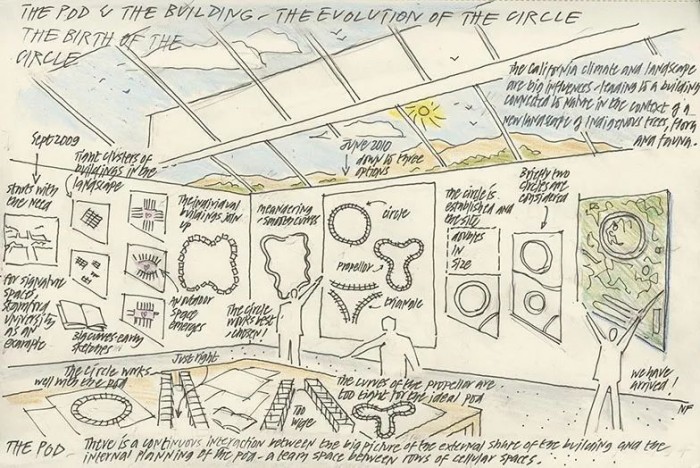 THE POD & THE BUILDING - THE EVOLUTION OF THE CIRCLE
THE BIRTH OF THE
CIRCLE
The California climate and landscape
are big influences - leading to a building
connected to nature in the context of a
new landscape of indigenous trees, flora
and fauna.
Sept 2009
starts with
the need
for signature
spaces,
Stanford
University
as an
example
tight clusters of
buildings in the
landscape
early
sketches
The individual
buildings join
up
an outdoor
space
emerges
meandering
The circle
works best
June 2010
down to three
options
circle
propellor
triangle
The circle is
established and
the site
doubles
in
size
Briefly two
circles are
considered
we have
arrived!
NF
The circle works
well with the pod
Just right
Too
wide
The curves of the propellor are
too tight for the ideal pod
THE POD - There is a continuous interaction between the big picture of the external shape of the building and the
internal planning of the pod - a team space between rows of cellular spaces.